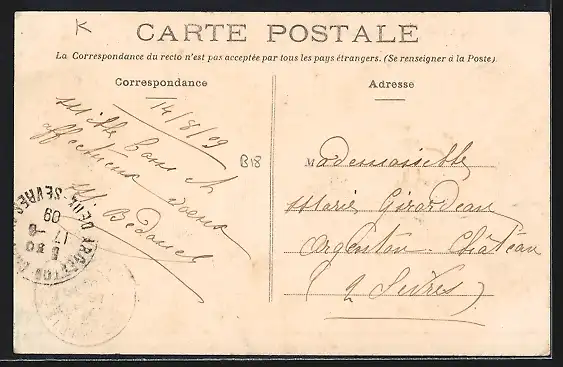 K
CARTE POSTALE
La Correspondance du recto n'est pas acceptée par tous les pays étrangers. (Se renseigner à la Poste).
Correspondance
14/8/09
Mille bons et
affectueux voeux
B18
DEUX-SEVRES
17-8
09
Adresse
Mademoiselle
Marie Girardeau
Argenton-Château
(2 Sèvres)